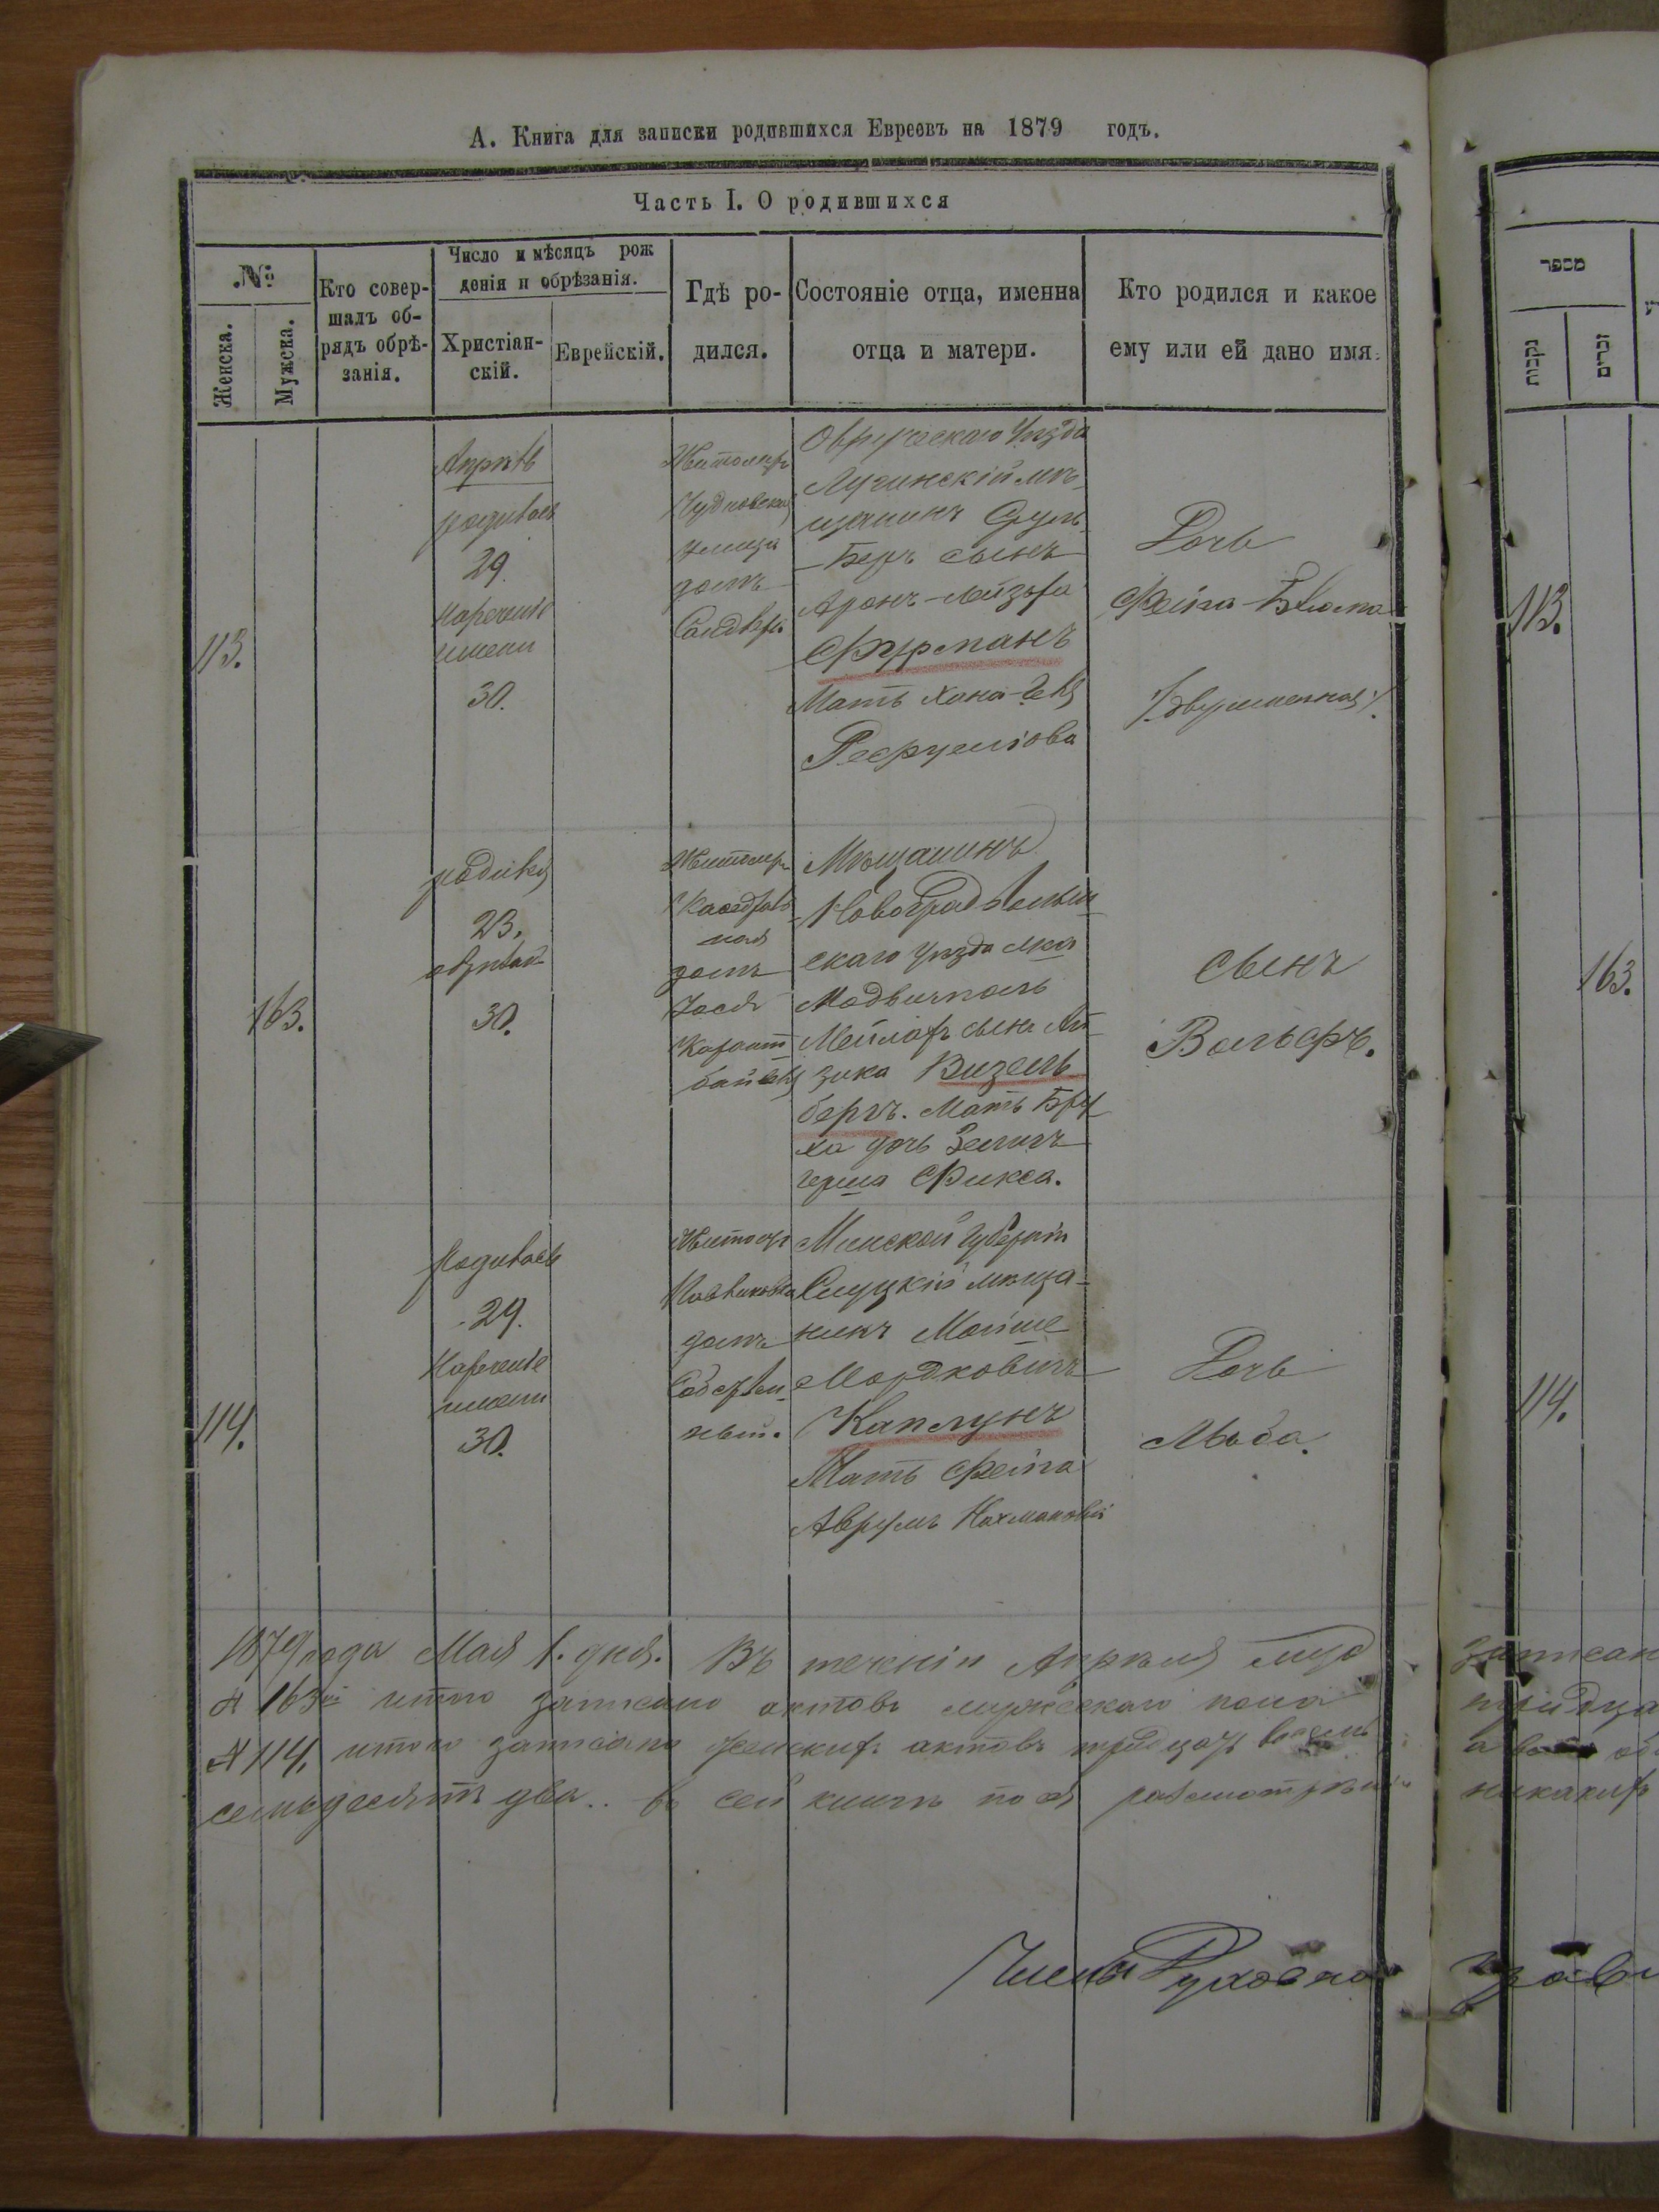 А. Книга для записки родившихся Евреевъ на 1879 годъ.
Часть I. О родившихся
№
Женска.
Мужска.
Кто совер-
шалъ об-
рядъ обрѣ-
занія.
Число и мѣсяцъ рож
денія и обрѣзанія.
Христіан-
скій.
Еврейскій.
Гдѣ ро-
дился.
Состояніе отца, именна
отца и матери.
Кто родился и какое
ему или ей дано имя.
113.
Апрѣль
родилась
29.
Нареченіе
имени
30.
Житомиръ
Чудновская
улица
домъ
Овручскаго Уѣзда
Лугинскій мѣ-
щанинъ Сруль
-Беръ сынъ
Аронъ-Лейзера
Фурманъ
Мать Хана-
Дочь
Фейга-Блюма
/:двуименная:/
163.
родился
23.
обрѣзанъ
30.
Житомиръ
Каѳедраль-
ная
домъ
Іося
Мѣщанинъ
Новоградволын-
скаго Уѣзда мка
Мейлахъ сынъ Ай-
зика Визель-
бергъ. Мать Бру-
ха дочь Зелигъ
герша Фикса.
сынъ
Вольфъ.
114.
родилась
29.
Нареченіе
имени
30.
Житомиръ
домъ
Минской губерніи
Слуцкій мѣща-
нинъ Мойше
Мордковичъ
Каплунъ
Мать Фейга
Аврумъ Нахмановой
Дочь
Люба.
1879 года Мая 1. дня. Въ теченіи Апрѣля
№ 163й итого записано актовъ мужескаго пола
№ 114, итого записано женскихъ актовъ тридцать восемь
семьдесятъ два.. въ сей книгѣ по
Члены Духовнаго
מספר
נקבות
זכרים
113.
163.
114.
записан
тридца
никакихъ